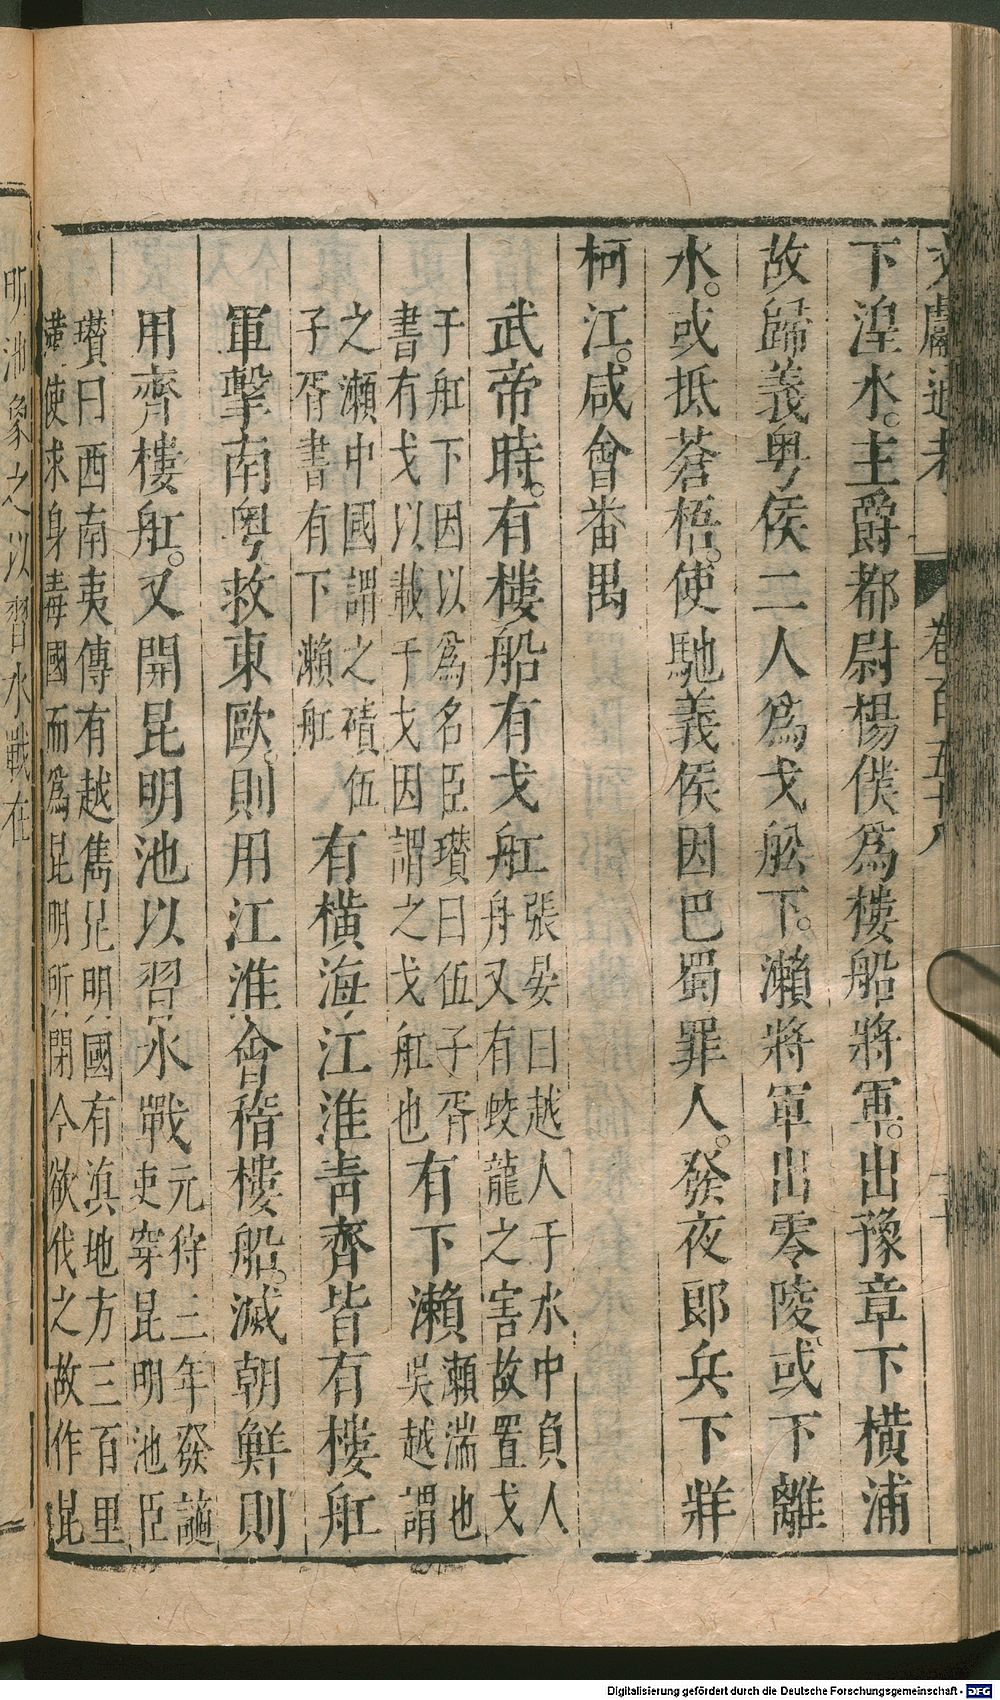 文獻通考 卷百五十八 十
下湟水。主爵都尉楊僕爲樓船將軍。出豫章下橫浦
故歸義粤侯二人爲戈舩下。瀨將軍出零陵。或下離
水。或抵蒼梧。使馳義侯因巴蜀罪人。發夜郎兵下牂
柯江。咸會番禺
武帝時。有樓船有戈舡張晏曰越人于水中負人
舟又有蛟龍之害故置戈
于舡下因以爲名臣瓚曰伍子胥
書有戈以載于戈因謂之戈舡也有下瀨瀨湍也
吳越謂
之瀨中國謂之磧伍
子胥書有下瀨舡有橫海江淮青齊皆有樓舡
軍擊南粤救東歐。則用江淮會稽樓船。滅朝鮮則
用齊樓舡。又開昆明池以習水戰元狩三年發謫
吏穿昆明池臣
瓚曰西南夷傳有越雋昆明國有滇地方三百里
漢使求身毒國而爲昆明所閉今欲伐之故作昆
明池象之以習水戰在
Digitalisierung gefördert durch die Deutsche Forschungsgemeinschaft - DFG